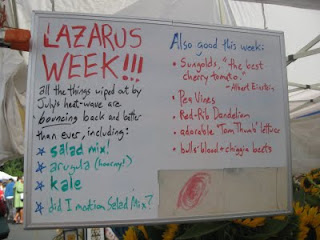 LAZARUS
WEEK!!!
all the things wiped out by
July's heat-wave are
bouncing back and better
than ever, including:
salad mix!
arugula (hooray!)
kale
did I mention Salad Mix?
Also good this week:
• Sungolds, "the best
cherry tomato."
-Albert Einstein
• Pea Vines
• Red-Rib Dandelion
• adorable "Tom Thumb" lettuce
• bulls' blood + chiggia beets